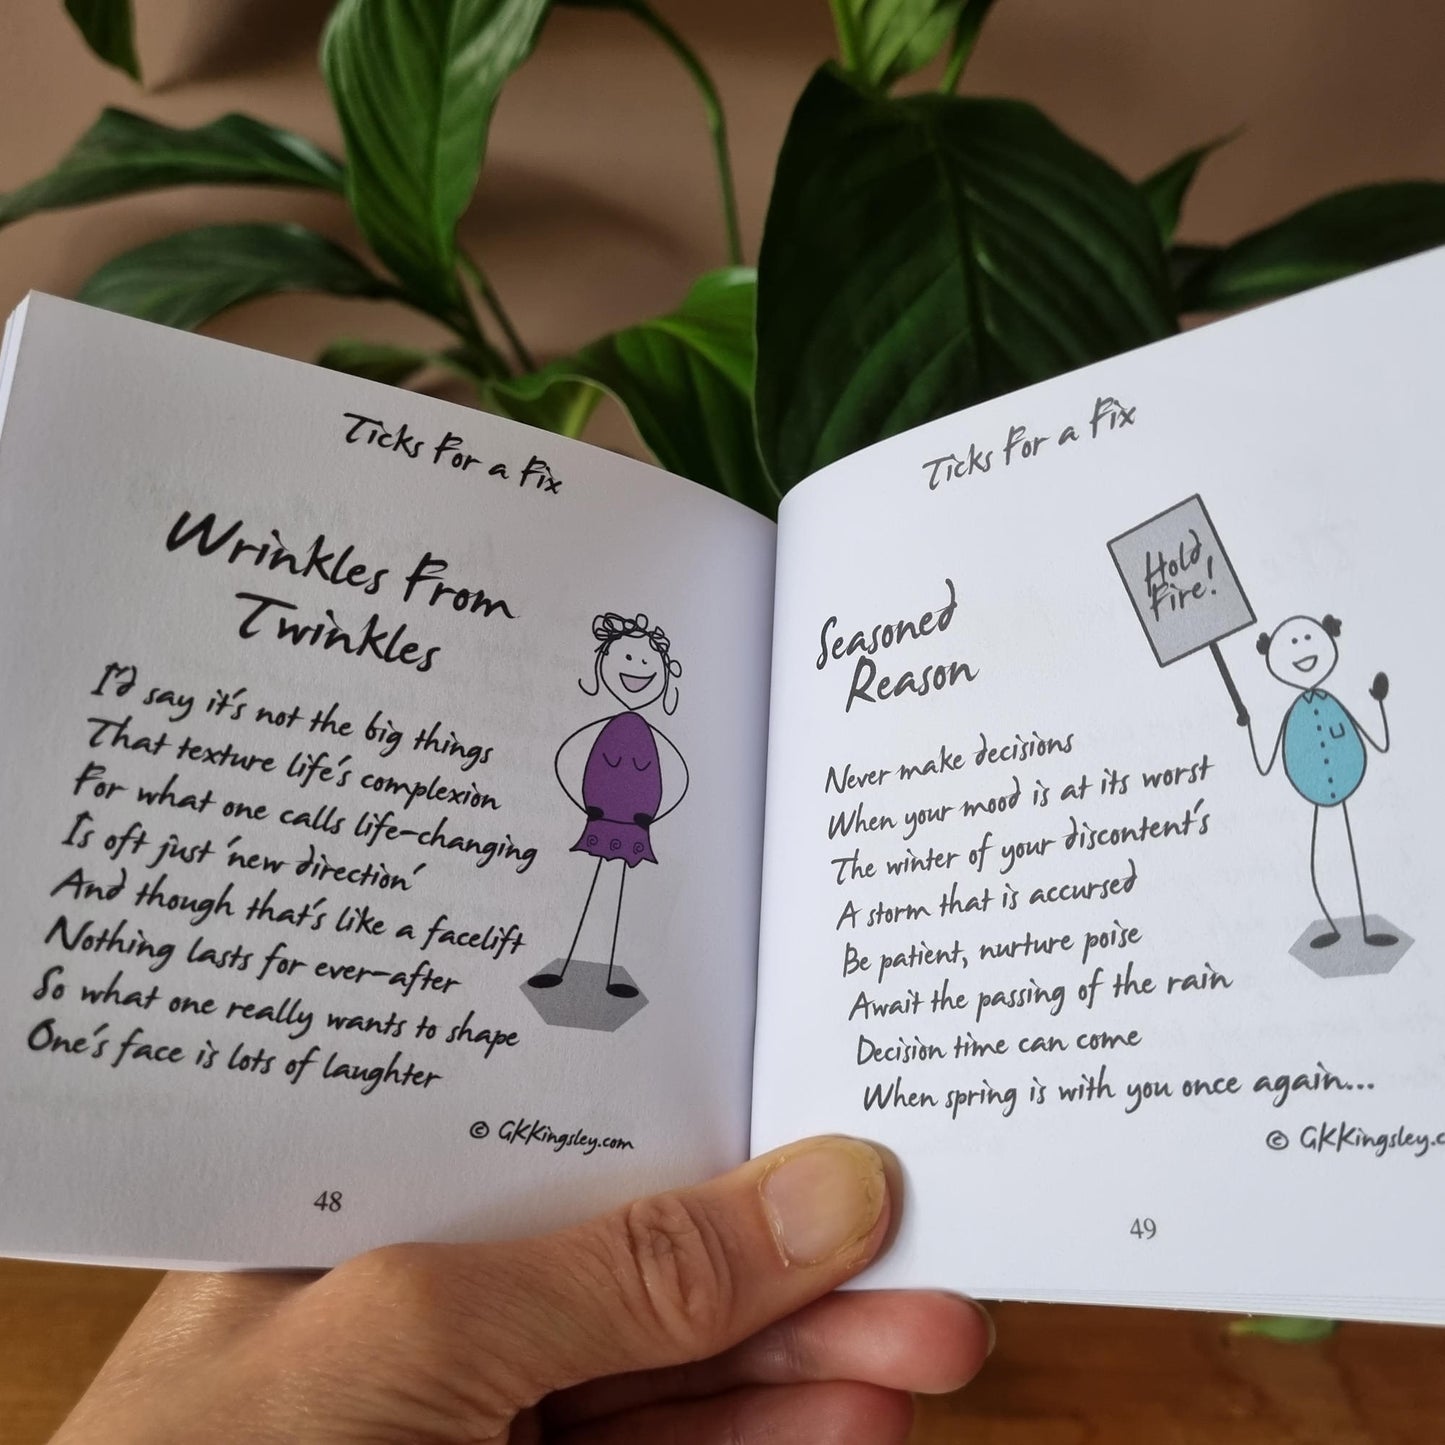 Ticks For a Fix
Wrinkles From
Twinkles
I'd say it's not the big things
That texture life's complexion
For what one calls life-changing
Is oft just 'new direction'
And though that's like a facelift
Nothing lasts for ever-after
So what one really wants to shape
One's face is lots of laughter
© GKKingsley.com
48
Ticks For a Fix
Hold
Fire!
Seasoned
Reason
Never make decisions
When your mood is at its worst
The winter of your discontent's
A storm that is accursed
Be patient, nurture poise
Await the passing of the rain
Decision time can come
When spring is with you once again...
© GKKingsley.c
49